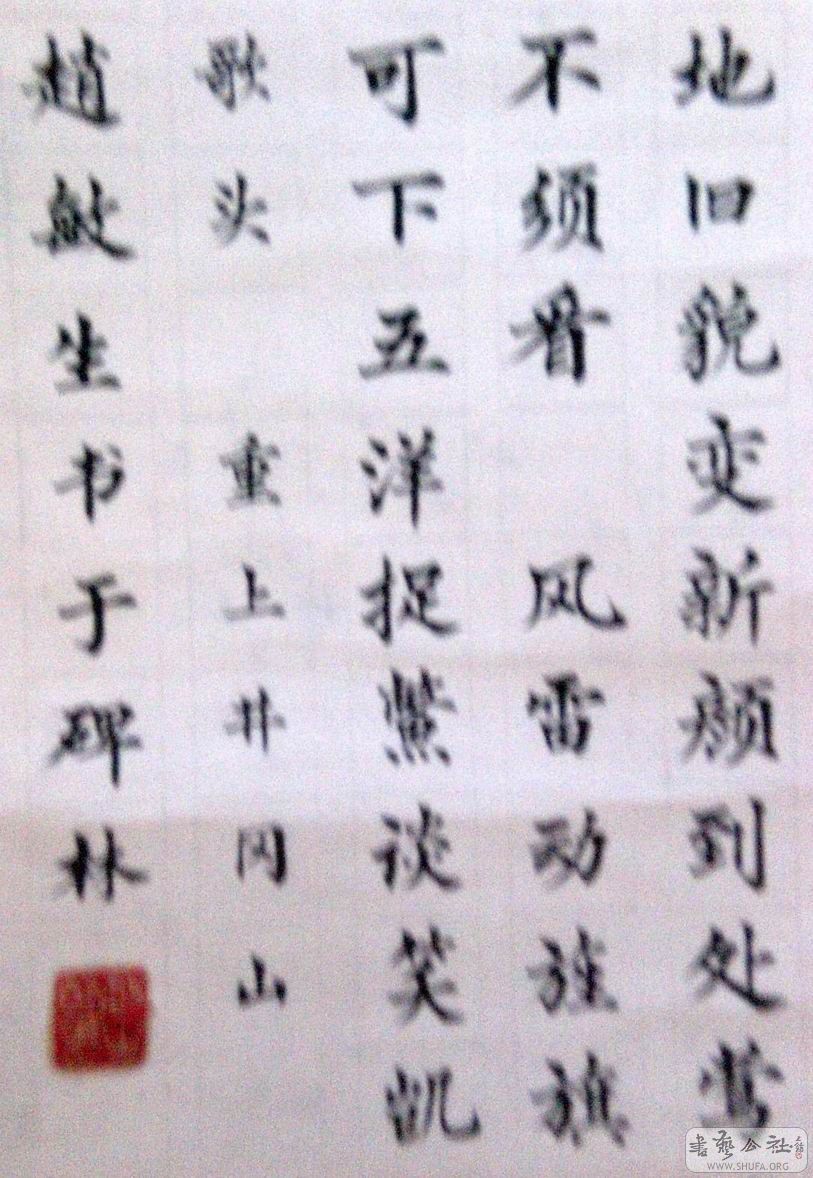 地旧貌变新颜到处莺
不须看 风雷动旌旗
可下五洋捉鳖谈笑凯
歌头 重上井冈山
赵敏生书于碑林
書藝公社
WWW.SHUFA.ORG